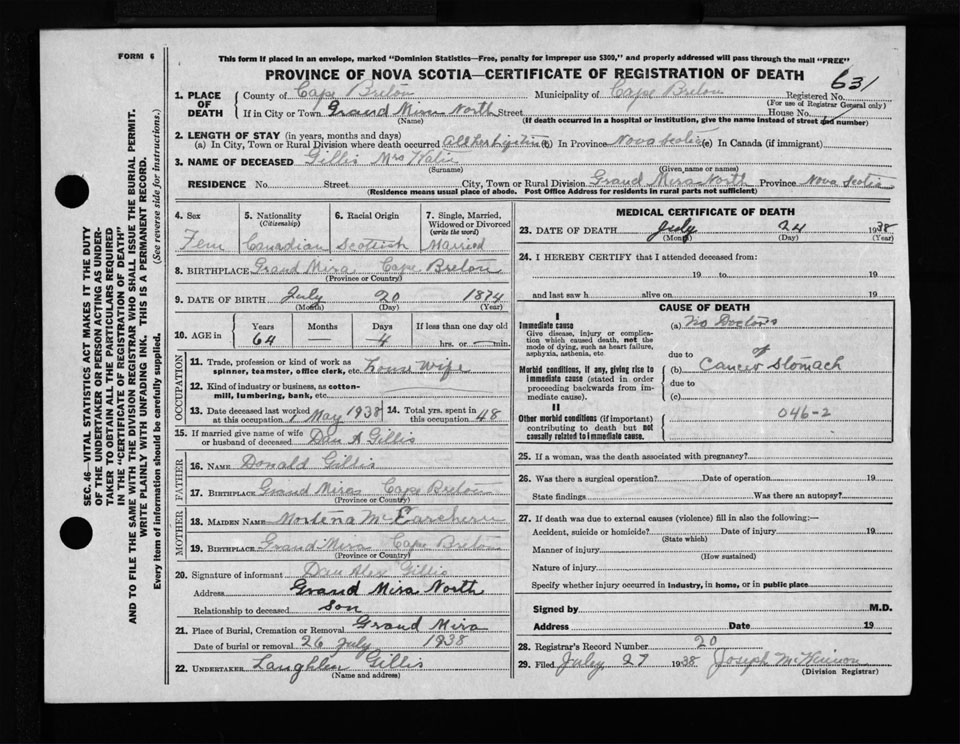 FORM 6
This form if placed in an envelope, marked "Dominion Statistics—Free, penalty for improper use $300," and properly addressed will pass through the mail "FREE"
PROVINCE OF NOVA SCOTIA—CERTIFICATE OF REGISTRATION OF DEATH
631
1. PLACE OF DEATH
County of Cape Breton Municipality of Cape Breton Registered No.
(For use of Registrar General only)
If in City or Town Grand Mira North Street House No.
(Name) (If death occurred in a hospital or institution, give the name instead of street and number)
2. LENGTH OF STAY (in years, months and days)
(a) In City, Town or Rural Division where death occurred All her life time (b) In Province Nova Scotia (c) In Canada (if immigrant)
3. NAME OF DECEASED Gillis Mrs Katie
(Surname) (Given name or names)
RESIDENCE No. Street City, Town or Rural Division Grand Mira North Province Nova Scotia
(Residence means usual place of abode. Post Office Address for residents in rural parts not sufficient)
SEC. 46—VITAL STATISTICS ACT MAKES IT THE DUTY
OF THE UNDERTAKER OR PERSON ACTING AS UNDER-
TAKER TO OBTAIN ALL THE PARTICULARS REQUIRED
IN THE "CERTIFICATE OF REGISTRATION OF DEATH"
AND TO FILE THE SAME WITH THE DIVISION REGISTRAR WHO SHALL ISSUE THE BURIAL PERMIT.
WRITE PLAINLY WITH UNFADING INK. THIS IS A PERMANENT RECORD.
Every item of information should be carefully supplied. (See reverse side for instructions.)
4. Sex 5. Nationality (Citizenship) 6. Racial Origin 7. Single, Married, Widowed or Divorced (write the word)
Fem Canadian Scottish Married
8. BIRTHPLACE Grand Mira Cape Breton
(Province or Country)
9. DATE OF BIRTH July 20 1874
(Month) (Day) (Year)
10. AGE in Years Months Days If less than one day old
64 — 4 hrs. or — min.
OCCUPATION
11. Trade, profession or kind of work as
spinner, teamster, office clerk, etc. House Wife
12. Kind of industry or business, as cotton-
mill, lumbering, bank, etc.
13. Date deceased last worked at this occupation 1 May 1938 14. Total yrs. spent in this occupation 48
15. If married give name of wife
or husband of deceased Dan A Gillis
FATHER
16. NAME Donald Gillis
17. BIRTHPLACE Grand Mira Cape Breton
(Province or Country)
MOTHER
18. MAIDEN NAME McEachern
19. BIRTHPLACE Grand Mira Cape Breton
(Province or Country)
20. Signature of informant Dan Alex Gillis
Address Grand Mira North
Relationship to deceased Son
21. Place of Burial, Cremation or Removal Grand Mira
Date of burial or removal 26 July 1938
22. UNDERTAKER Laughlin Gillis
(Name and address)
MEDICAL CERTIFICATE OF DEATH
23. DATE OF DEATH July 24 1938
(Month) (Day) (Year)
24. I HEREBY CERTIFY that I attended deceased from:
19 to 19
and last saw h alive on 19
CAUSE OF DEATH
I
Immediate cause (a) No Doctors
Give disease, injury or complica-
tion which caused death, not the
mode of dying, such as heart failure,
asphyxia, asthenia, etc due to of
Morbid conditions, if any, giving rise to (b) Cancer Stomach
immediate cause (stated in order due to
proceeding backwards from im-
mediate cause). (c)
II
Other morbid conditions (if important) 046-2
contributing to death but not
causally related to immediate cause.
25. If a woman, was the death associated with pregnancy?
26. Was there a surgical operation? Date of operation 19
State findings Was there an autopsy?
27. If death was due to external causes (violence) fill in also the following:—
Accident, suicide or homicide? Date of injury 19
(State which)
Manner of injury
(How sustained)
Nature of injury
Specify whether injury occurred in industry, in home, or in public place
Signed by M.D.
Address Date 19
28. Registrar's Record Number 20
29. Filed July 27 1938 Joseph McKinnon
(Division Registrar)